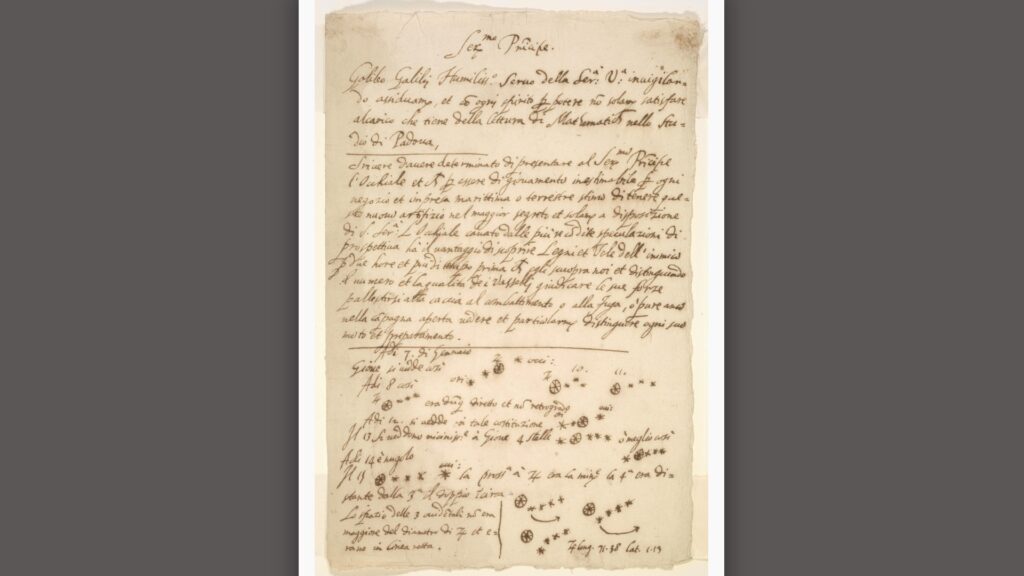 Ser.mo Principe.
Galileo Galilei Humiliss.o Servo della Ser.a V.a invigilan-
do assiduam.e, et cõ ogni spirito p potere nõ solam.e satisfare
al carico che tiene della lettura di Matematich nello Stu-
dio di Padova,
Scrivere d'avere determinato di presentare al Ser.mo Principe
l'Occhiale et p essere di giovamento inestimabile p ogni
negozio et impresa marittima o terrestre stimo di tenere que-
sto nuovo artifizio nel maggior segreto et solam.e a disposizione
di S. Ser.a L'Occhiale cavato dalle più recõdite speculazioni di
prospettiva hà il vantaggio di scoprire Legni et Vele dell'inimico
p due hore et più di tempo prima egli scuopra noi et distinguendo
il numero et la qualità de i Vasselli giudicare le sue forze
pallestirsi alla caccia al combattimento o alla fuga, o pure anco
nella cãpagna aperta vedere et particolarm.e distinguere ogni suo
moto et preparamento.
Adi 7. di Gennaio
Gioue si vedde così occi:
Adi 8 così ori
10. 11.
era dũq diretto et nõ retrogrado
Adi 12. si vedde in tale costituzione
Il 13 si veddono vicinis.e à Gioue 4 stelle ò meglio così
Adi 14 è nugolo
Il 15 la pross.a à ♃ era la min.e la 4.a era di-
stante dalla 3.a il doppio
Lo spazio delle 3 occidentali nõ era
maggiore del diametro di ♃ et e-
rano in linea retta.
♃ long. 71.38 Lat. 1.13